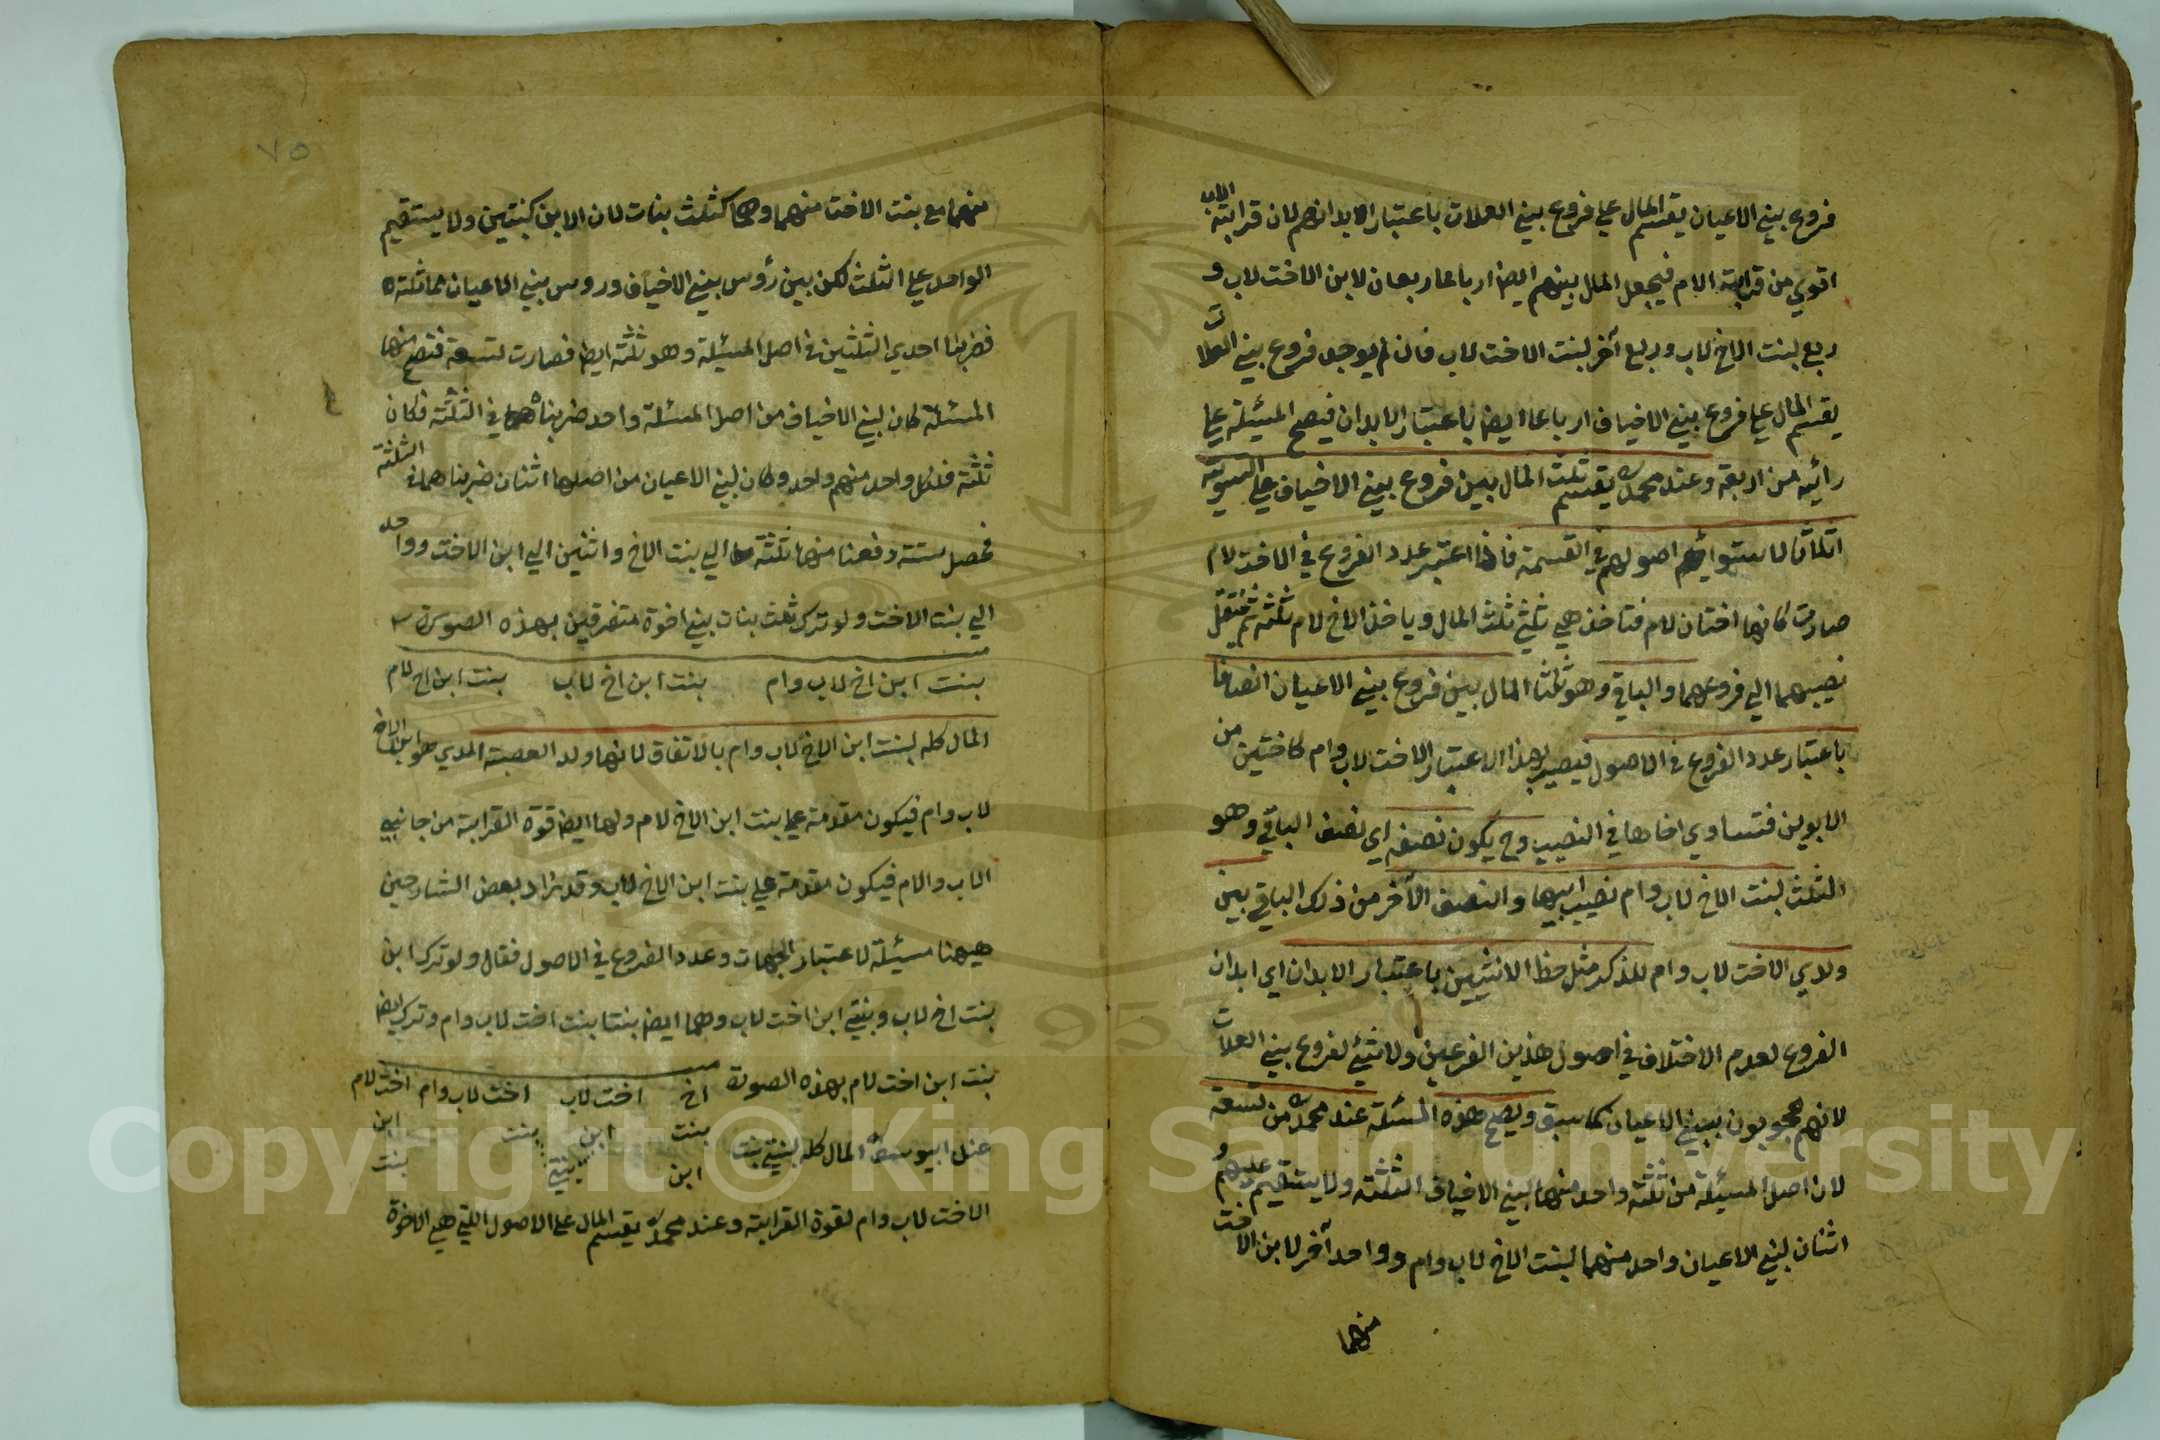 فروع بني الاعيان يقسم المال علي فروع بني العلات باعتبار الابدان لان قرابة الاب
اقوي من قرابة الام فيجعل المال بينهم ايضا ارباعا ربعان لابن الاخت لاب و
ربع لبنت الاخ لاب وربع آخر لبنت الاخت لاب فان لم يوجد فروع بني العلات
يقسم المال علي فروع بني الاخياف ارباعا ايضا باعتبار الابدان فيصح المسئلة علي
رائيه من اربعة وعند محمد يقسم ثلث المال بين فروع بني الاخياف علي السوية
اثلاثا لاستواء اصولهم في القسمة فاذا اعتبر عدد الفروع في الاخت لام
صارت كانها اختان لام فتاخذ هي ثلثي ثلث المال وياخذ الاخ لام ثلثه ثم ينتقل
نصيبهما الي فروعهما والباقي وهو ثلثا المال بين فروع بني الاعيان انصافا
باعتبار عدد الفروع في الاصول فيصير بهذا الاعتبار الاخت لاب وام كاختين من
الابوين فتساوي اخاها في النصيب وح يكون نصفه اي نصف الباقي وهو
الثلث لبنت الاخ لاب وام نصيب ابيها والنصف الآخر من ذلك الباقي بين
ولدي الاخت لاب وام للذكر مثل حظ الانثيين باعتبار الابدان اي ابدان
الفروع لعدم الاختلاف في اصول هذين الفرعين ولا شيء لفروع بني العلات
لانهم محجوبون ببني الاعيان كما سبق ويصح هذه المسئلة عند محمد من تسعة
لان اصل المسئلة من ثلثة واحد منها لبني الاخياف الثلثة ولا يستقيم عليهم و
اثنان لبني الاعيان واحد منهما لبنت الاخ لاب وام وواحد آخر لابن الاخت
منهما
٧٥
منهما مع بنت الاخت منهما وهما كثلث بنات لان الابن كبنتين ولا يستقيم
الواحد علي الثلث لكن بين رؤس بني الاخياف وروس بني الاعيان مماثلة
فضربنا احدي الثلثين في اصل المسئلة وهو ثلثة ايضا فصارت تسعة فتصح منها
المسئلة كان لبني الاخياف من اصل المسئلة واحد ضربناه في الثلثة فكان
ثلثة فلكل واحد منهم واحد وكان لبني الاعيان من اصلها اثنان ضربناهما في الثلثة
فحصل ستة دفعنا منها ثلثة الي بنت الاخ واثنين الي ابن الاخت وواحد
الي بنت الاخت ولو ترك ثلث بنات بني اخوة متفرقين بهذه الصورة
بنت ابن اخ لاب وام   بنت ابن اخ لاب   بنت ابن اخ لام
المال كله لبنت ابن الاخ لاب وام بالاتفاق لانها ولد العصبة الذي هو ابن الاخ
لاب وام فيكون مقدمة علي بنت ابن الاخ لام ولها ايضا قوة القرابة من جانبي
الاب والام فيكون مقدمة علي بنت ابن الاخ لاب وقد زاد بعض الشارحين
هيهنا مسئلة لاعتبار الجهات وعدد الفروع في الاصول فقال ولو ترك ابن
بنت اخ لاب وبنتي ابن اخت لاب وهما ايضا بنتا بنت اخت لاب وام وترك ايضا
بنت ابن اخت لام بهذه الصورة   اخ   اخت لاب   اخت لاب وام   اخت لام
بنت   ابن   بنت   ابن
عند ابيوسف المال كله لبنتي بنت   ابن   بنتي   بنت
الاخت لاب وام لقوة القرابة وعند محمد يقسم المال علي الاصول اللتي هي الاخوة
Copyright © King Saud University